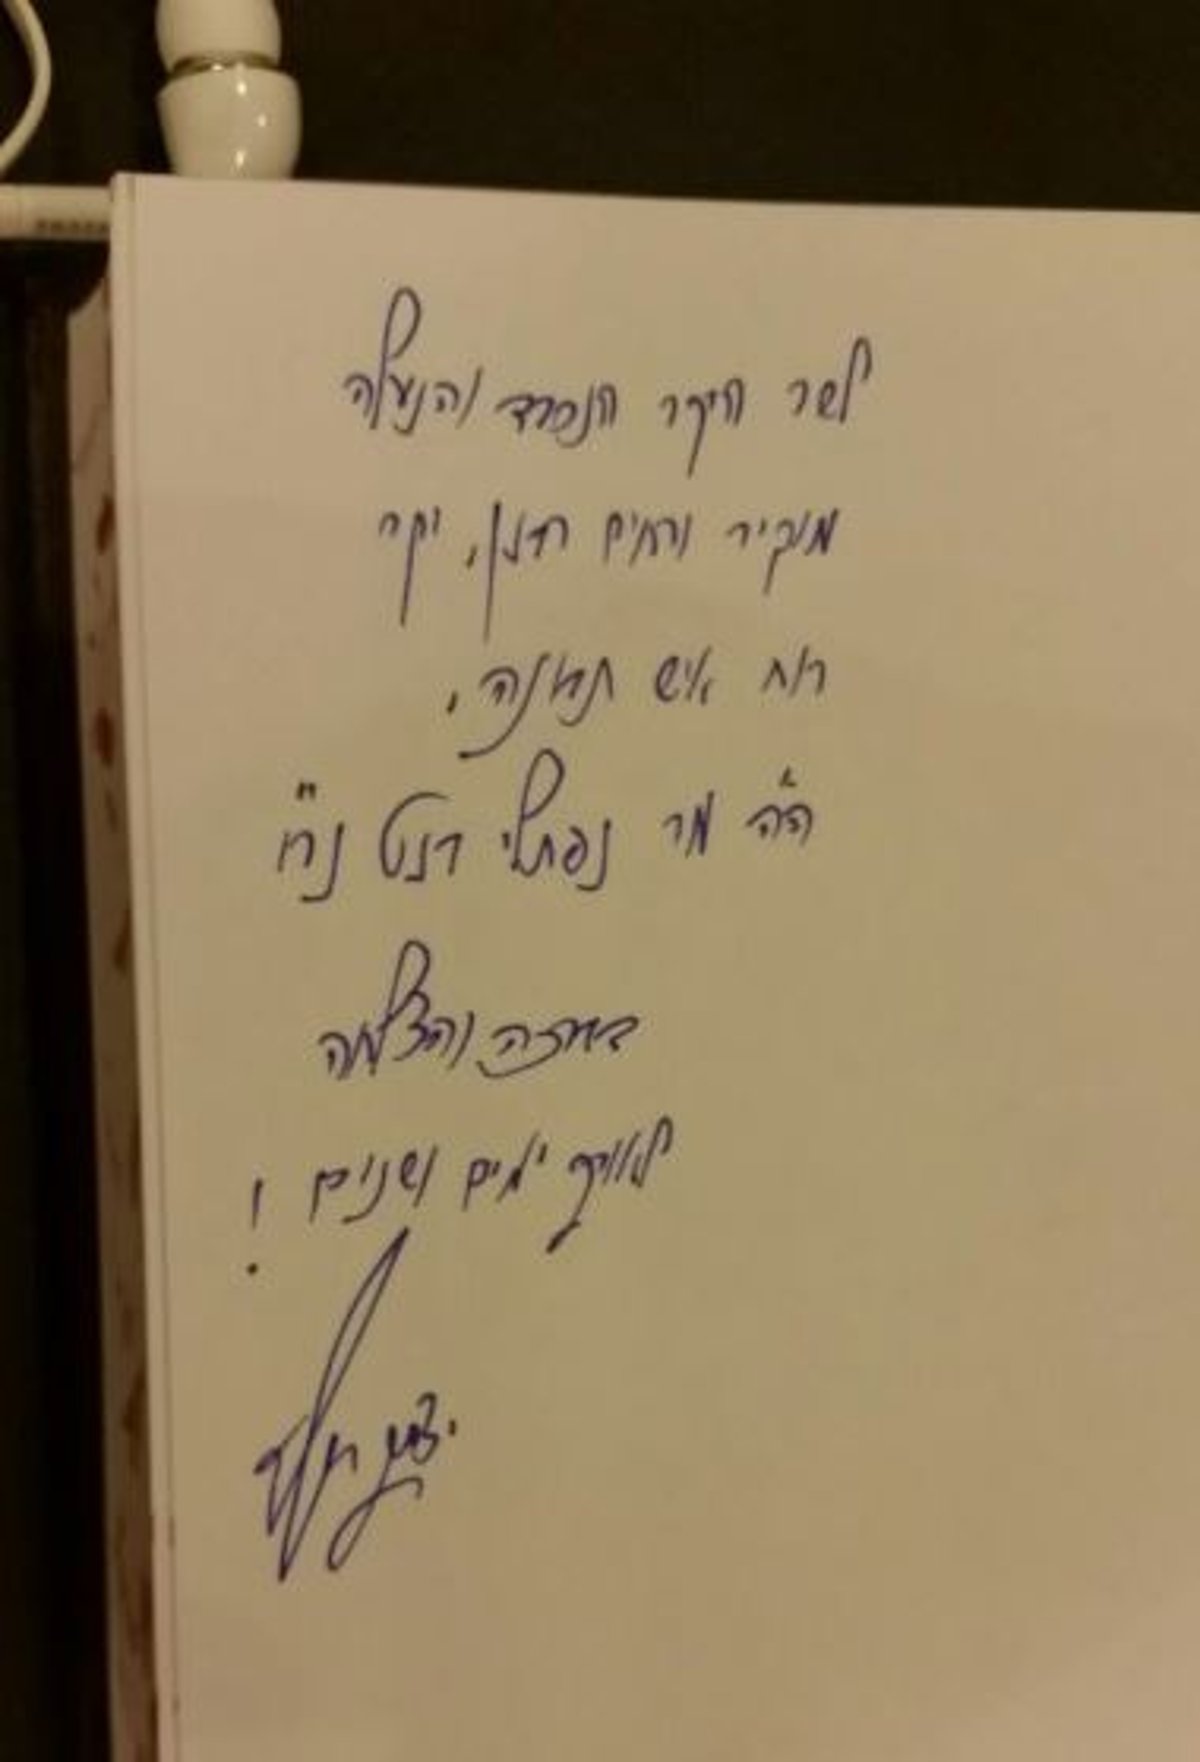 לשר היקר הנכבד והנעלה
מוקיר ורחים רבנן, יקר
רוח איש תבונה,
ה"ה מר נפתלי בנט נ"י
בברכה והצלחה
לאורך ימים ושנים !
יצחק